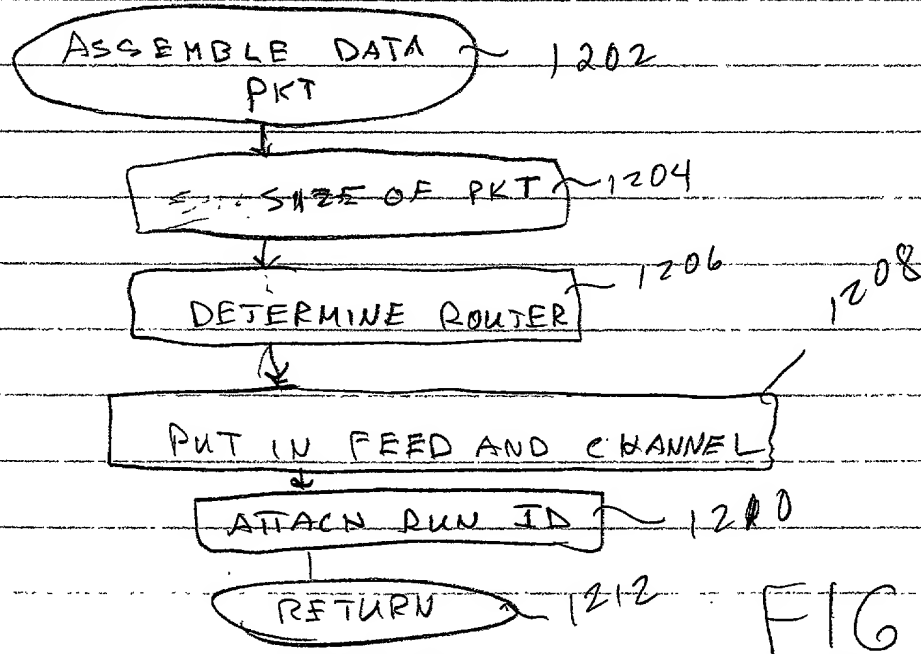 ASSEMBLE DATA 1202
PKT
SIZE OF PKT 1204
DETERMINE ROUTER 1206
1208
PUT IN FEED AND CHANNEL
ATTACH RUN ID 1210
RETURN 1212
FIG